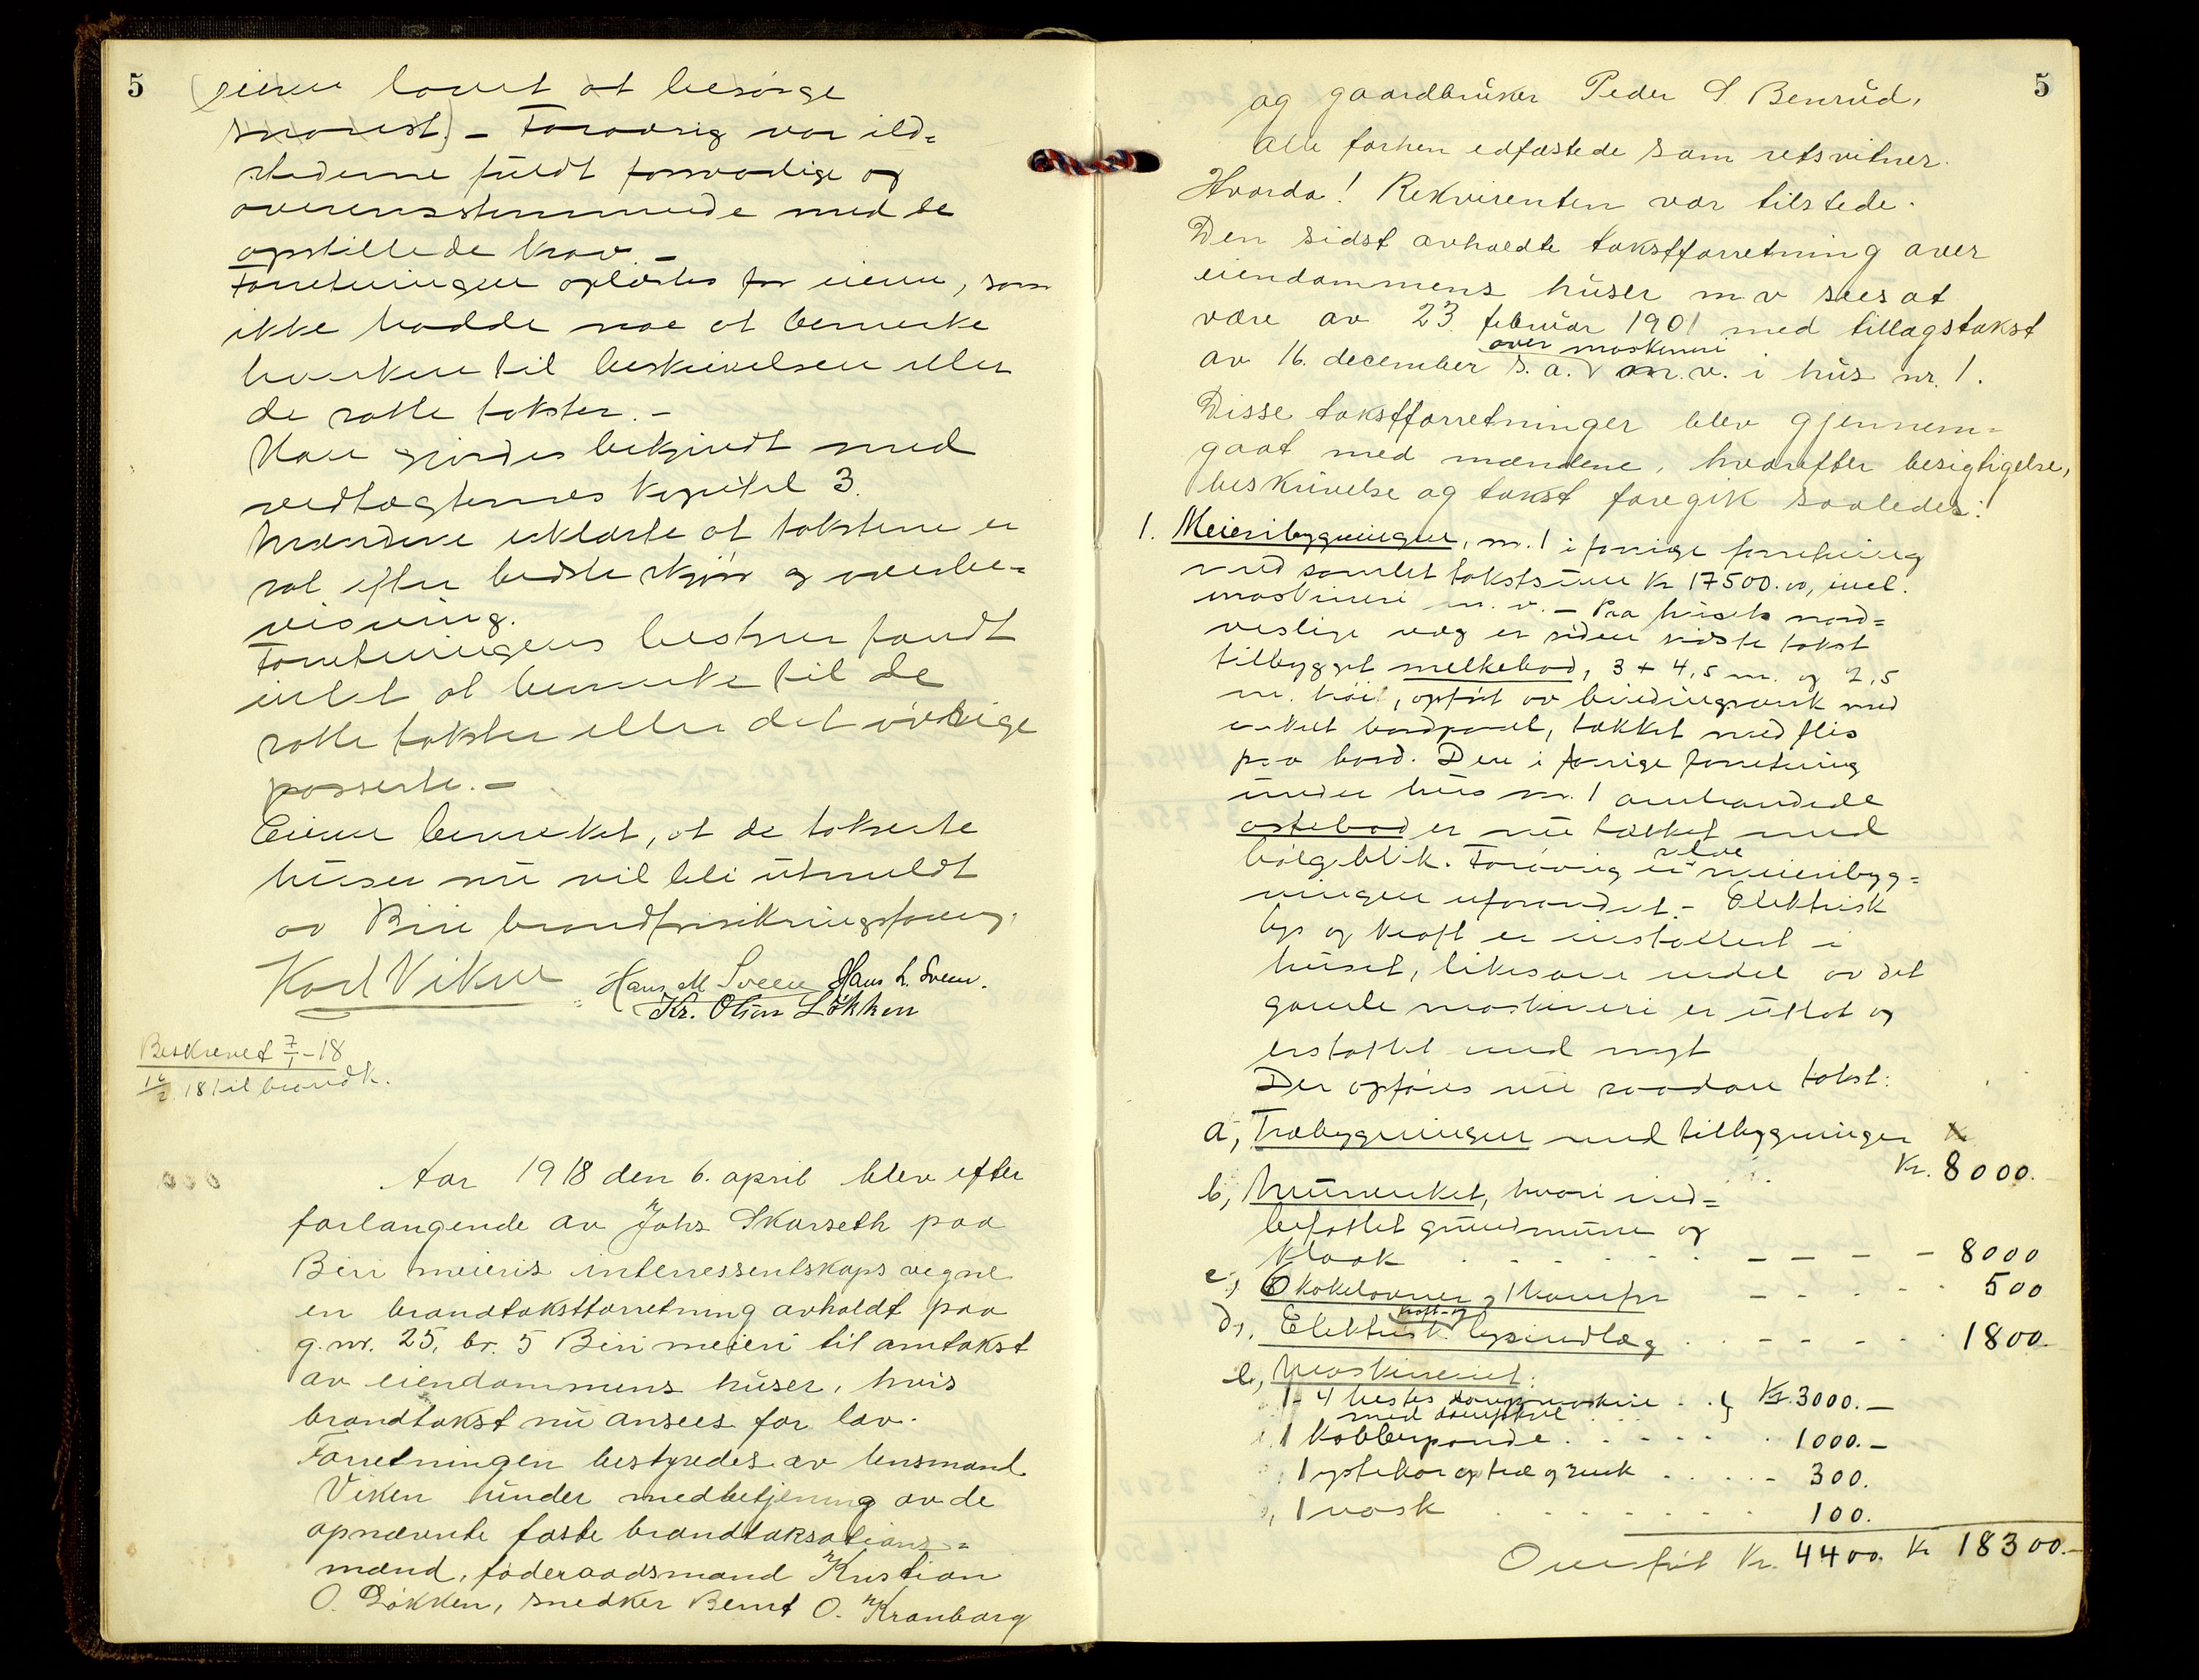 5
eieren lovet at besørge
snarest.) – Forøvrig var ild=
stederne fuldt forsvarlige og
overensstemmende med de
opstillede krav. –
Forretningen oplæstes for eieren, som
ikke hadde noe at bemerke
hverken til beskrivelsen eller
de satte takster. –
Han gjordes bekjendt med
vedtægternes kapitel 3.
Mændene erklærte at taksterne er
sat efter bedste skjøn og overbe=
visning.
Forretningens bestyrer fandt
intet at bemerke til de
satte takster eller det øvrige
passerte. –
Eieren bemerket, at de takserte
huser nu vil bli utmeldt
av Biri brandforsikringsforeng.
Karl Viken Hans M Sveen Hans L. Sveen.
Kr. Olsen Løkken
Beskrevet 7/1 – 18
18 til brandk.
Aar 1918 den 6. april blev efter
forlangende av Johs Skarseth paa
Biri meieris interressentskaps vegne
en brandtakstforretning avholdt paa
g. nr. 25, br. 5 Biri meieri til omtakst
av eiendommens huser, hvis
brandtakst nu ansees for lav.
Forretningen bestyredes av lensmand
Viken under medbetjening av de
opnævnte faste brandtaksations=
mænd, føderaadsmand Kristian
O. Løkken, snedker Bernt O. Kranborg
5
og gaardbruker Peder S Benrud,
Alle forhen edfæstede som retsvitner.
Hvorda! Rekvirenten var tilstede.
Den sidst avholdte takstforretning over
eiendommens huser m v sees at
være av 23 februar 1901 med tillægstakst
over maskineri
av 16. december s. a. m. v. i hus nr. 1.
Disse takstforretninger blev gjennem=
gaat med mændene, hvorefter besigtigelse,
beskrivelse og takst foregik saaledes:
1. Meieribygningen, nr. 1 i forrige forretning
med samlet takstsum Kr 17500.00, incl.
maskineri m. v. – Paa husets nord=
vestlige væg er siden sidste takst
tilbygget melkebod, 3 + 4,5 m. og 2,5
m. høi, opført av bindingsverk med
enkelt bordpanel, tækket med flis
paa bord. Den i forrige forretning
under hus nr. 1 omhandlede
ostebod er nu tækket med
bølgeblik. Forøvrig er selve meieribyg=
ningen uforandret. – Elektrisk
lys og kraft er installert i
huset, likesom endel av det
gamle maskineri er uttat og
erstattet med nyt
Der opføres nu saadan takst:
a, Træbygningen med tilbygninger
Kr. 8000.
b, Murverket, hvori ind=
befattet grundmure og
kloak – – – – 8000
c, 6 kokelovner, 1 komfyr – – 500
d, Elektrisk kraft- og lysindlæg – – 1800.
e, Maskineriet:
1 – 4 hestes dampmaskine . . } Kr. 3000. –
med dampkjel
1 kobberpande . . . . 1000. –
1 ystekar av træ og sink . . . . – 300.
1 vask . . . . . . 100.
Overført Kr. 4400. Kr 18300. –